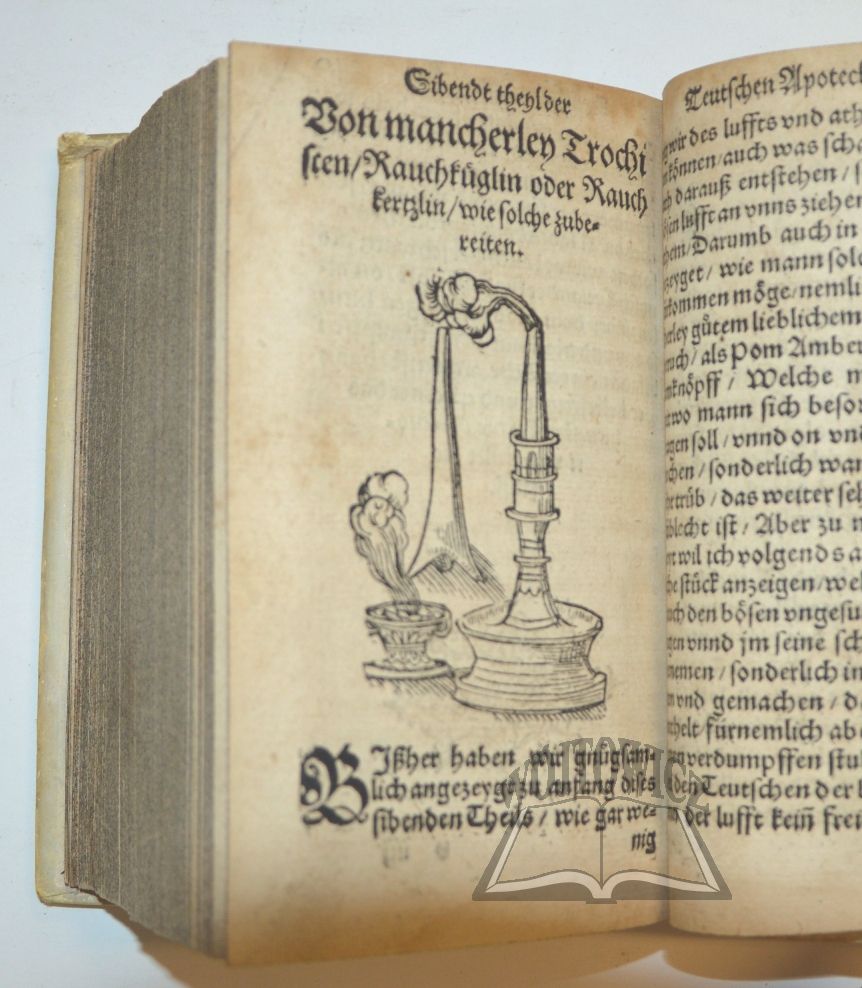 Sibendt theyl der
Von mancherley Trochi
scen/Rauchküglin oder Rauch
kertzlin/wie solche zube⸗
reiten.
BIßher haben wir gnůgsam⸗
lich angezeygt zu anfang dises
sibenden Theils / wie gar we⸗
nig
Teutschen Apoteck
wir des luffts vnd ath
können/auch was scha
darauß entstehen /
lufft an vnns ziehen
Darumb auch in
wie mann sol
kommen möge/nemli
gůtem lieblichem
als Pom Amber
knöpff / Welche
wo mann sich besor
soll / vnnd on vnd
sonderlich wan
trüb / das weiter seh
ist / Aber zu
wil ich volgends a
stück anzeigen/wel
den bösen vngesu
vnnd jm seine sch
nemen / sonderlich in
vnd gemachen / d
fürnemlich ab
verdumpffen stu
den Teutschen der
der lufft kein frei
WÓJTOWICZ